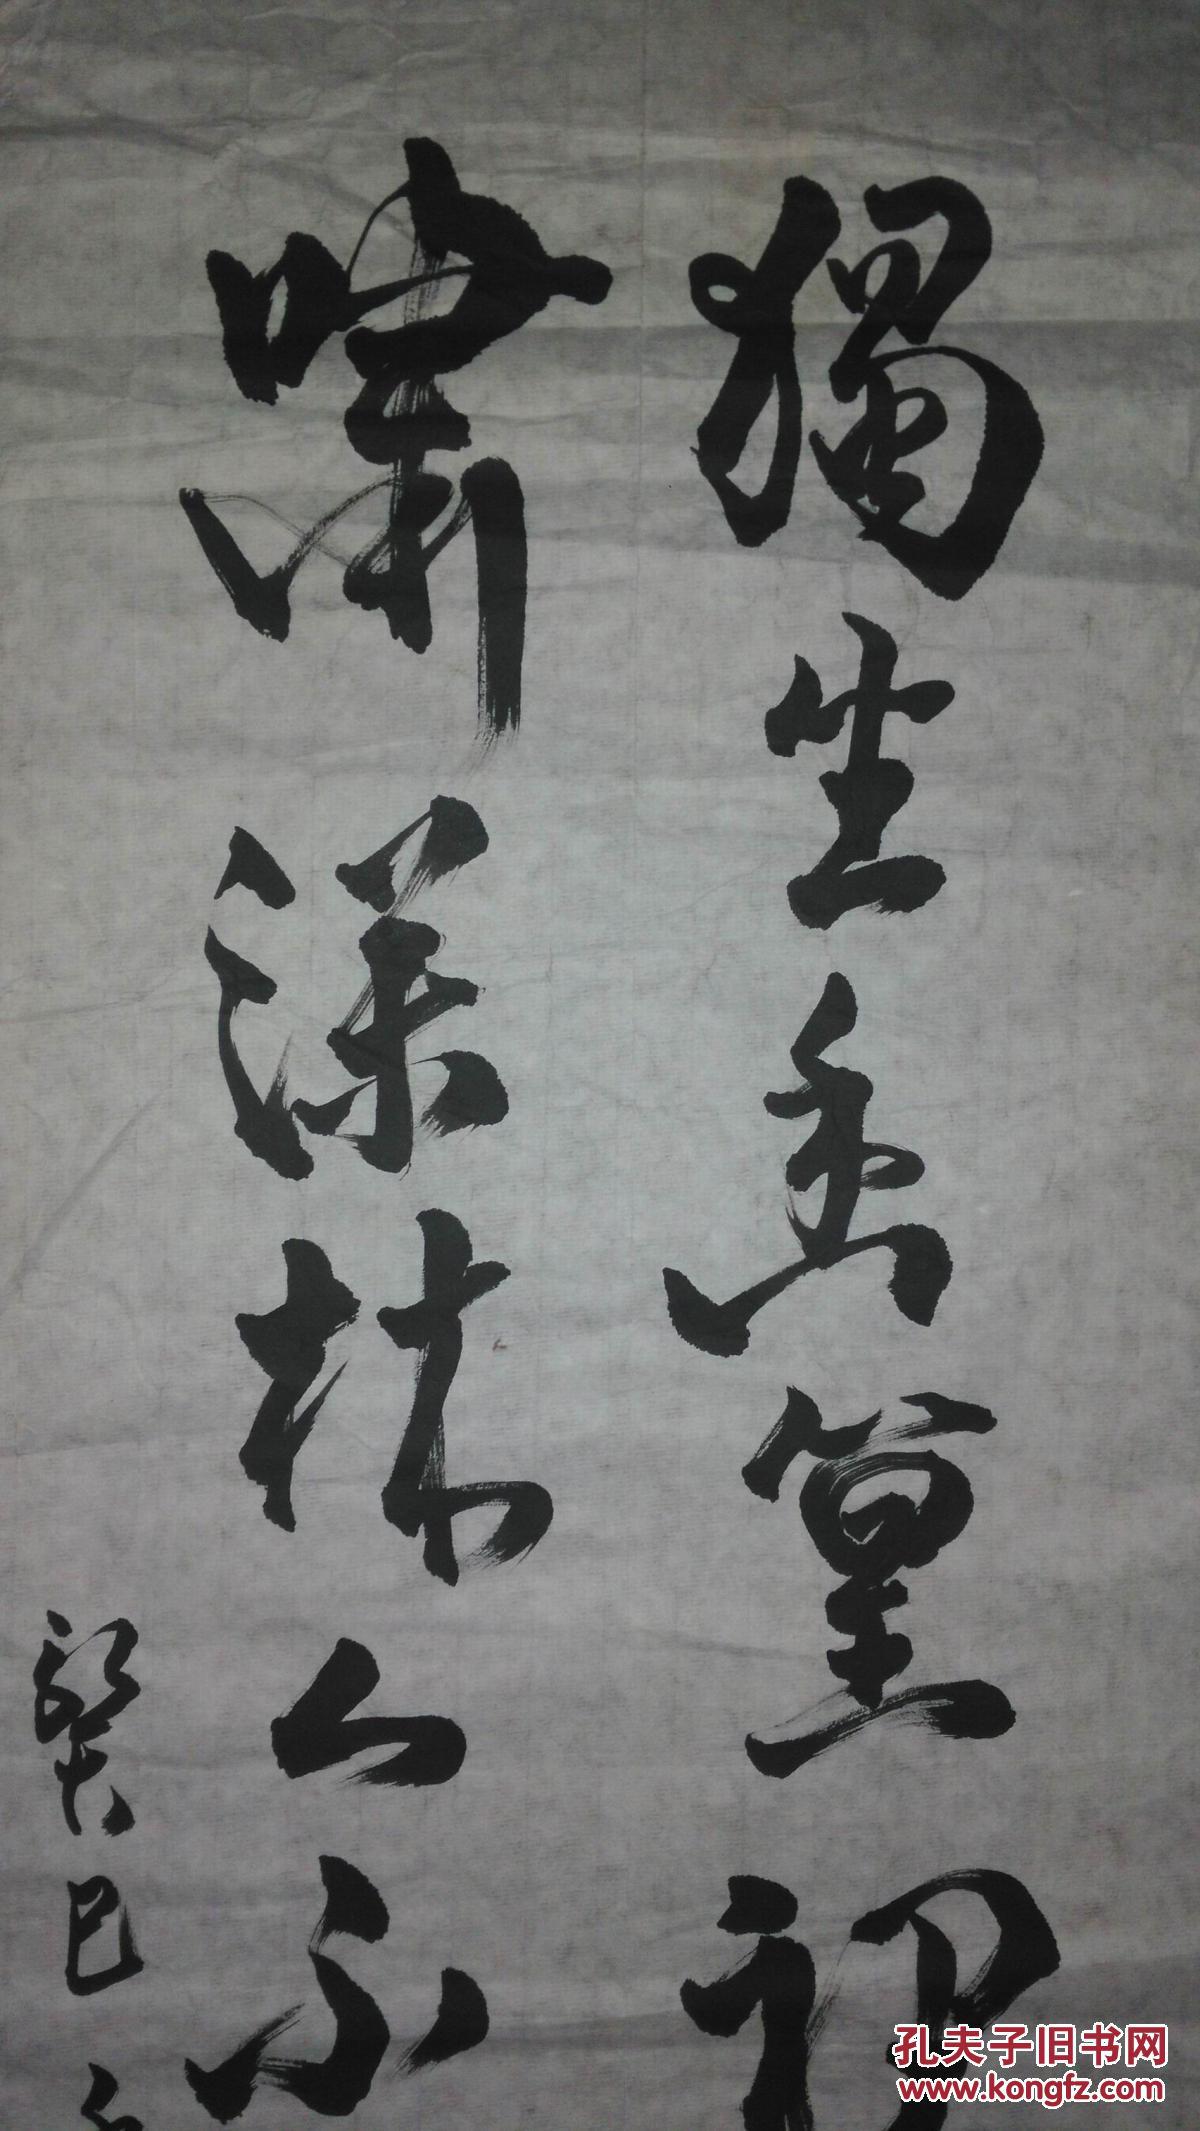 獨坐幽篁裡
嘯深林人不
癸巳
孔夫子旧书网
www.kongfz.com